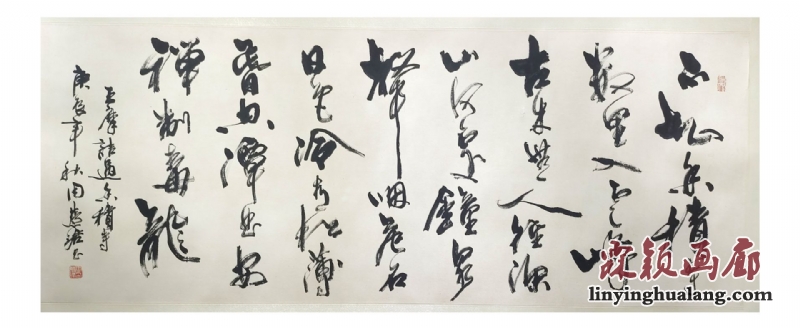 不知香積寺
數里入雲峰
古木無人徑深
山何處鐘泉
聲咽危石
日色冷青松薄
暮空潭曲安
禪制毒龍
王摩詰過香積寺
庚辰年秋周
霖颖画廊
linyinghualang.com